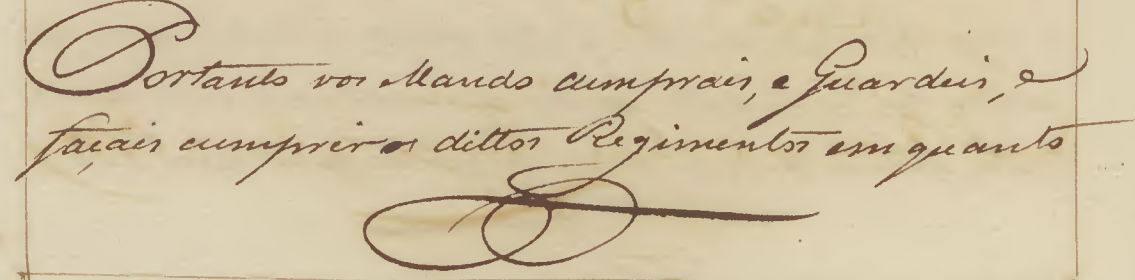 Portanto vos Mando cumprais, e Guardeis, e
façais cumprir os dittos Regimentos em quanto